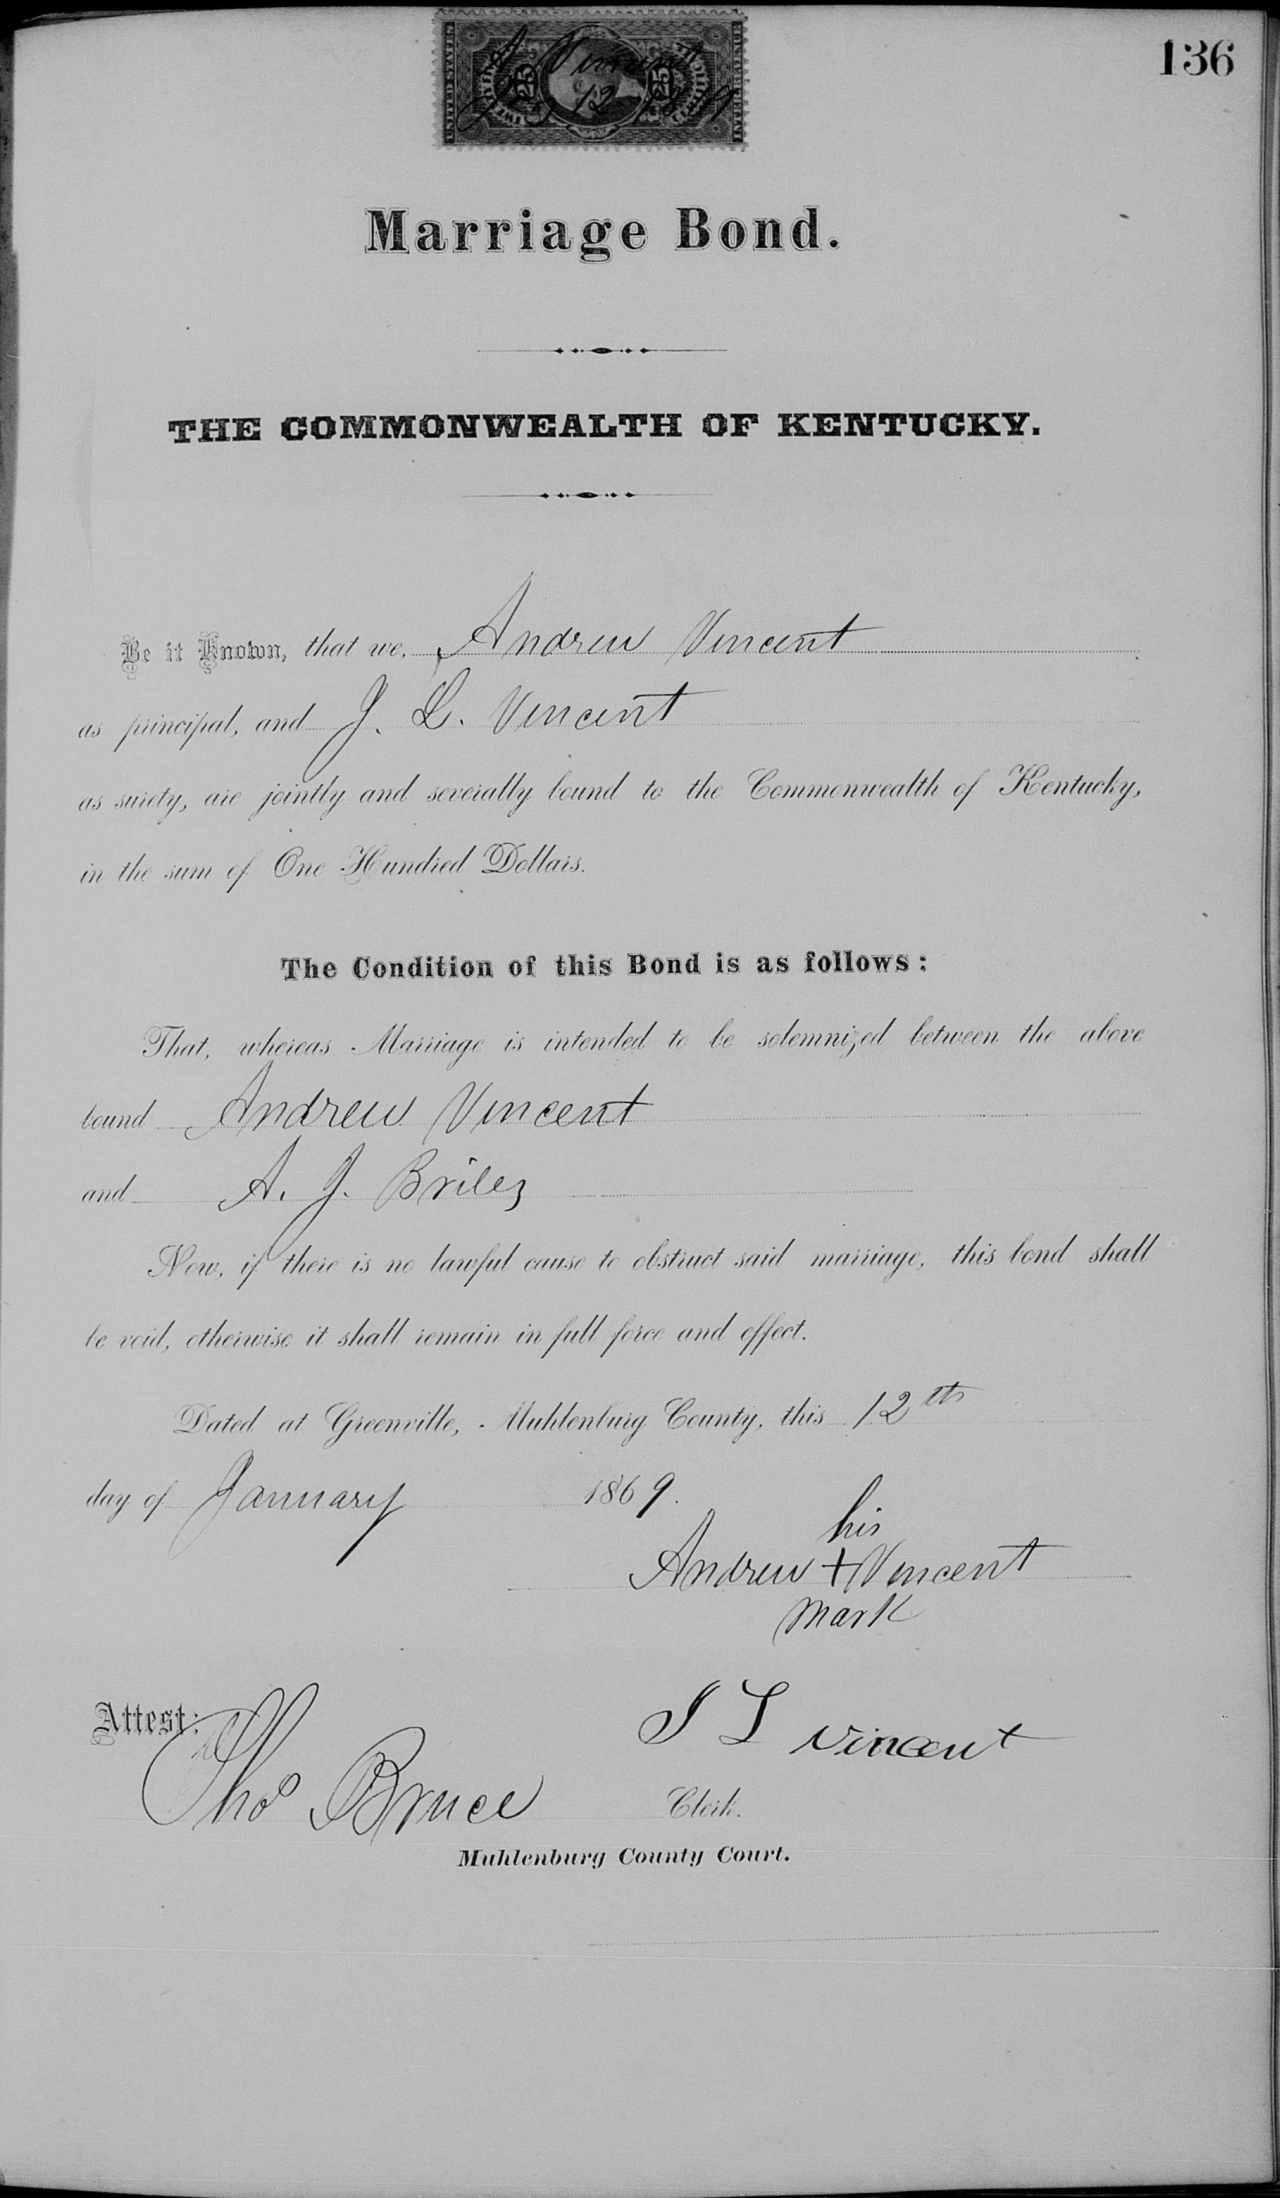 136
UNITED STATES
25 25
Vincent
12
Marriage Bond.
THE COMMONWEALTH OF KENTUCKY.
Be it Known, that we, Andrew Vincent
as principal, and J. L. Vincent
as surety, are jointly and severally bound to the Commonwealth of Kentucky,
in the sum of One Hundred Dollars.
The Condition of this Bond is as follows:
That, whereas Marriage is intended to be solemnized between the above
bound Andrew Vincent
and A. J. Briley
Now, if there is no lawful cause to obstruct said marriage, this bond shall
be void, otherwise it shall remain in full force and effect.
Dated at Greenville, Muhlenburg County, this 12th
day of January 1869.
his
Andrew + Vincent
mark
Attest:
J L Vincent
Thos Bruce Clerk.
Muhlenburg County Court.